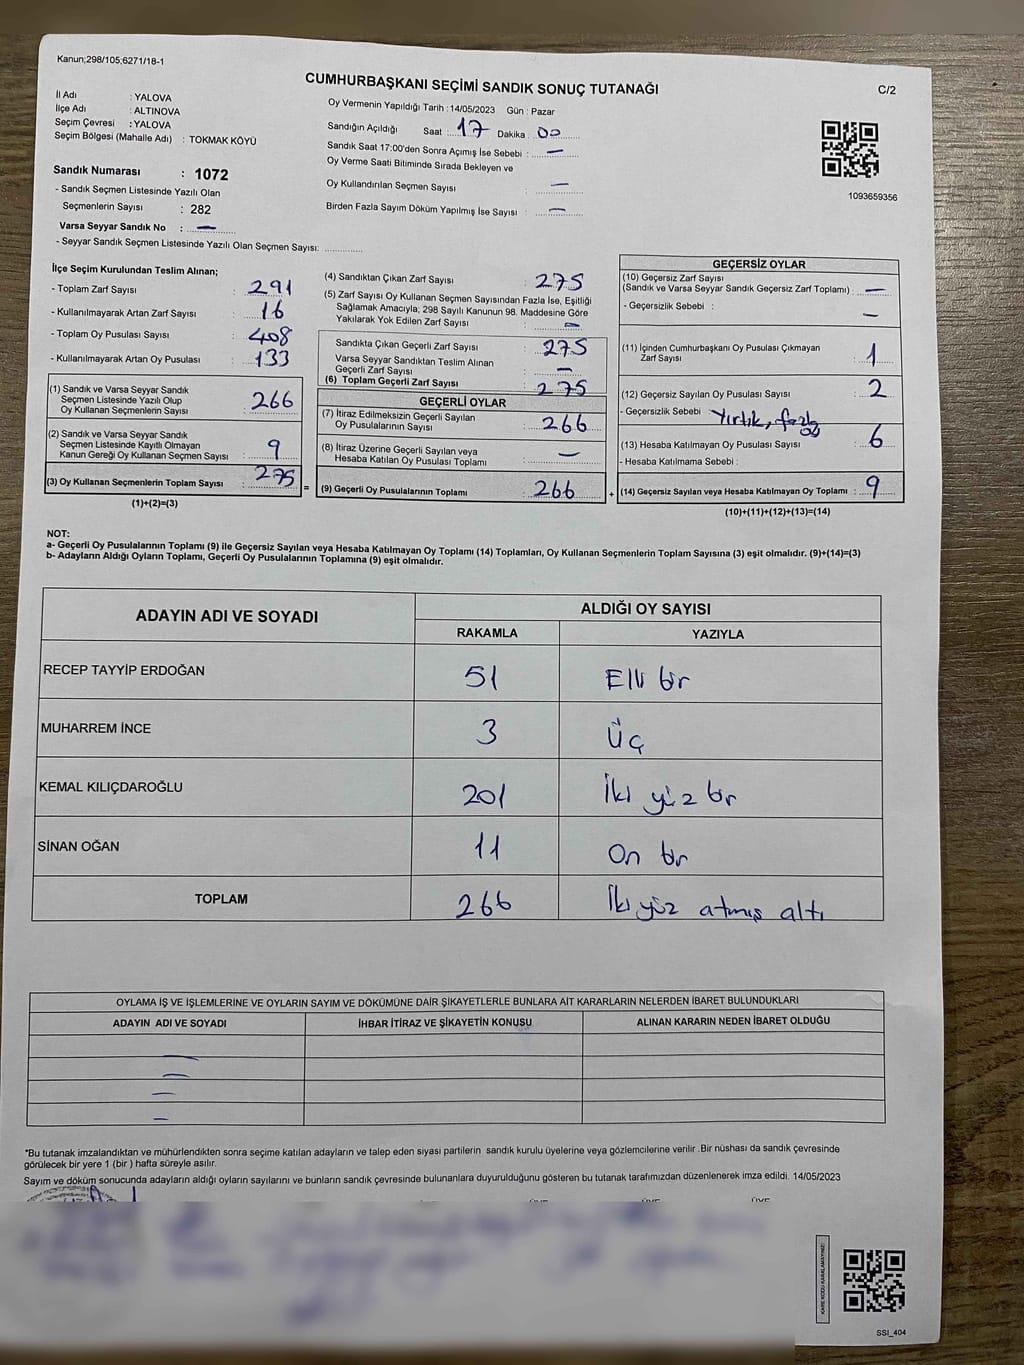 Kanun;298/105;6271/18-1
CUMHURBAŞKANI SEÇİMİ SANDIK SONUÇ TUTANAĞI
C/2
İl Adı : YALOVA
İlçe Adı : ALTINOVA
Seçim Çevresi : YALOVA
Seçim Bölgesi (Mahalle Adı) : TOKMAK KÖYÜ
Oy Vermenin Yapıldığı Tarih : 14/05/2023 Gün : Pazar
Sandığın Açıldığı Saat : 17 Dakika : 00
Sandık Saat 17:00'den Sonra Açımış İse Sebebi : —
Oy Verme Saati Bitiminde Sırada Bekleyen ve
Oy Kullandırılan Seçmen Sayısı : —
Birden Fazla Sayım Döküm Yapılmış İse Sayısı : —
1093659356
Sandık Numarası : 1072
- Sandık Seçmen Listesinde Yazılı Olan
Seçmenlerin Sayısı : 282
Varsa Seyyar Sandık No : —
- Seyyar Sandık Seçmen Listesinde Yazılı Olan Seçmen Sayısı:
İlçe Seçim Kurulundan Teslim Alınan;
- Toplam Zarf Sayısı : 291
- Kullanılmayarak Artan Zarf Sayısı : 16
- Toplam Oy Pusulası Sayısı : 408
- Kullanılmayarak Artan Oy Pusulası : 133
(1) Sandık ve Varsa Seyyar Sandık
Seçmen Listesinde Yazılı Olup
Oy Kullanan Seçmenlerin Sayısı : 266
(2) Sandık ve Varsa Seyyar Sandık
Seçmen Listesinde Kayıtlı Olmayan
Kanun Gereği Oy Kullanan Seçmen Sayısı : 9
(3) Oy Kullanan Seçmenlerin Toplam Sayısı : 275
(1)+(2)=(3)
(4) Sandıktan Çıkan Zarf Sayısı : 275
(5) Zarf Sayısı Oy Kullanan Seçmen Sayısından Fazla İse, Eşitliği
Sağlamak Amacıyla; 298 Sayılı Kanunun 98. Maddesine Göre
Yakılarak Yok Edilen Zarf Sayısı : —
Sandıkta Çıkan Geçerli Zarf Sayısı : 275
Varsa Seyyar Sandıktan Teslim Alınan
Geçerli Zarf Sayısı : —
(6) Toplam Geçerli Zarf Sayısı : 275
GEÇERLİ OYLAR
(7) İtiraz Edilmeksizin Geçerli Sayılan
Oy Pusulalarının Sayısı : 266
(8) İtiraz Üzerine Geçerli Sayılan veya
Hesaba Katılan Oy Pusulası Toplamı : —
= (9) Geçerli Oy Pusulalarının Toplamı : 266 +
GEÇERSİZ OYLAR
(10) Geçersiz Zarf Sayısı
(Sandık ve Varsa Seyyar Sandık Geçersiz Zarf Toplamı) : —
- Geçersizlik Sebebi : —
(11) İçinden Cumhurbaşkanı Oy Pusulası Çıkmayan
Zarf Sayısı : 1
(12) Geçersiz Sayılan Oy Pusulası Sayısı : 2
- Geçersizlik Sebebi : Yırtık, fazla oy
(13) Hesaba Katılmayan Oy Pusulası Sayısı : 6
- Hesaba Katılmama Sebebi :
(14) Geçersiz Sayılan veya Hesaba Katılmayan Oy Toplamı : 9
(10)+(11)+(12)+(13)=(14)
NOT:
a- Geçerli Oy Pusulalarının Toplamı (9) ile Geçersiz Sayılan veya Hesaba Katılmayan Oy Toplamı (14) Toplamları, Oy Kullanan Seçmenlerin Toplam Sayısına (3) eşit olmalıdır. (9)+(14)=(3)
b- Adayların Aldığı Oyların Toplamı, Geçerli Oy Pusulalarının Toplamına (9) eşit olmalıdır.
ADAYIN ADI VE SOYADI ALDIĞI OY SAYISI
RAKAMLA YAZIYLA
RECEP TAYYİP ERDOĞAN 51 Elli bir
MUHARREM İNCE 3 Üç
KEMAL KILIÇDAROĞLU 201 İki yüz bir
SİNAN OĞAN 11 On bir
TOPLAM 266 İki yüz atmış altı
OYLAMA İŞ VE İŞLEMLERİNE VE OYLARIN SAYIM VE DÖKÜMÜNE DAİR ŞİKAYETLERLE BUNLARA AİT KARARLARIN NELERDEN İBARET BULUNDUKLARI
ADAYIN ADI VE SOYADI İHBAR İTİRAZ VE ŞİKAYETİN KONUSU ALINAN KARARIN NEDEN İBARET OLDUĞU
—
—
—
—
*Bu tutanak imzalandıktan ve mühürlendikten sonra seçime katılan adayların ve talep eden siyasi partilerin sandık kurulu üyelerine veya gözlemcilerine verilir. Bir nüshası da sandık çevresinde
görülecek bir yere 1 (bir ) hafta süreyle asılır.
Sayım ve döküm sonucunda adayların aldığı oyların sayılarını ve bunların sandık çevresinde bulunanlara duyurulduğunu gösteren bu tutanak tarafımızdan düzenlenerek imza edildi. 14/05/2023
KARE KODU KARALAMAYINIZ!
SSI_404